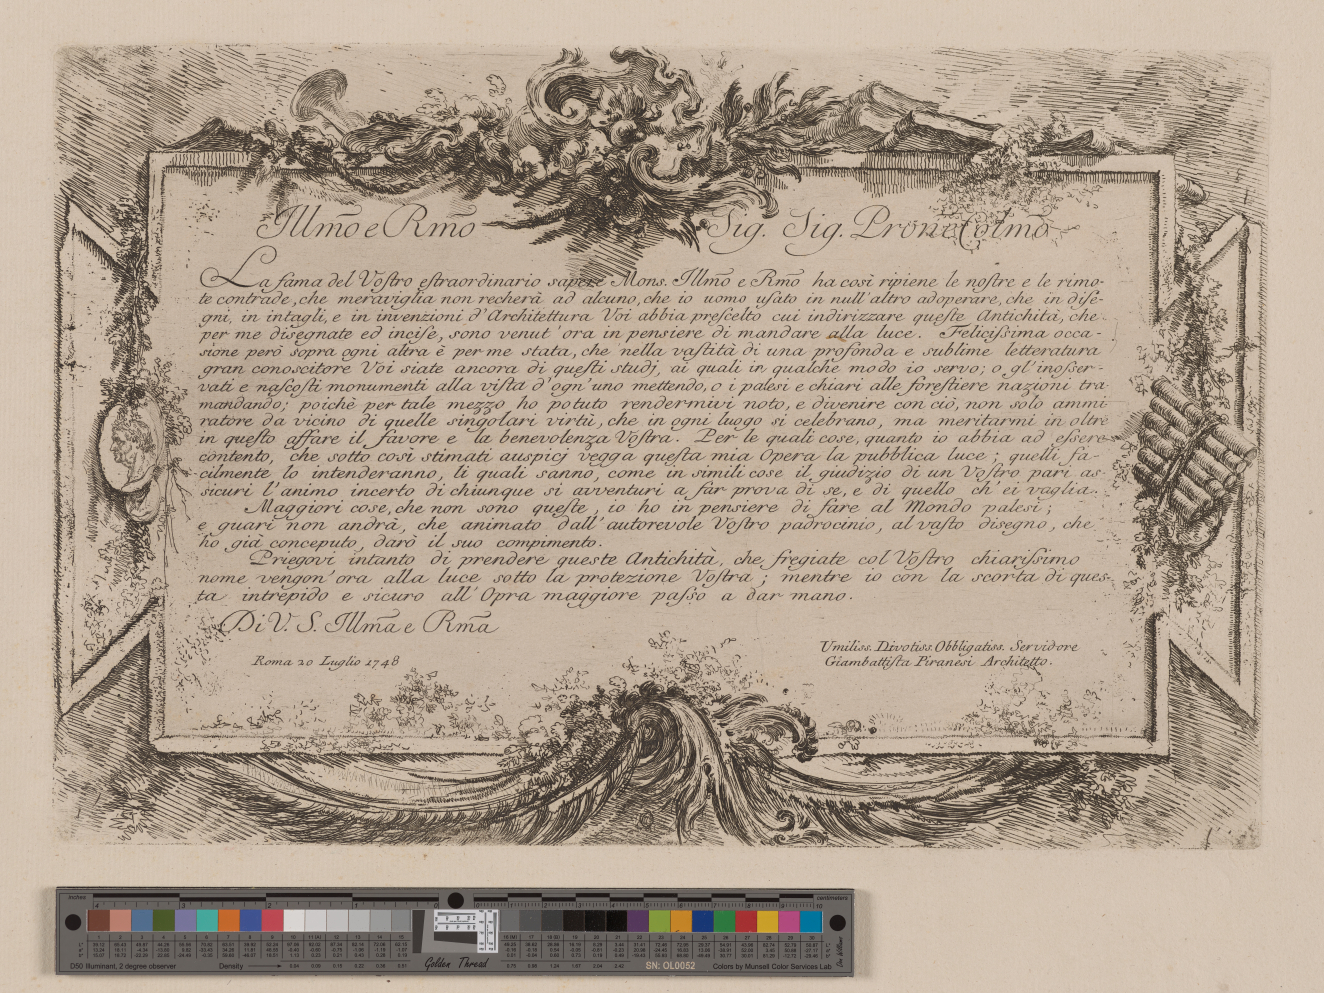 Illm̃o e Rm̃o Sig. Sig. Prõne Colmõ
La fama del Voſtro eſtraordinario sapere Mons. Illm̃o e Rm̃o ha così ripiene le noſtre e le rimo-
te contrade, che meraviglia non recherà ad alcuno, che io uomo uſato in null'altro adoperare, che in diſe-
gni, in intagli, e in invenzioni d'Architettura Voi abbia preſcelto cui indirizzare queſte Antichità, che
per me diſegnate ed inciſe, sono venut'ora in pensiere di mandare alla luce. Feliciſſima occa-
sione però sopra ogni altra è per me stata, che nella vaſtità di una profonda e sublime letteratura
gran conoſcitore Voi siate ancora di queſti studj, ai quali in qualche modo io servo; o gl'inoſſer-
vati e naſcoſti monumenti alla viſta d'ogn'uno mettendo, o i palesi e chiari alle foreſtiere nazioni tra-
mandando; poichè per tale mezzo ho potuto rendermivi noto, e divenire con ciò, non solo ammi-
ratore da vicino di quelle singolari virtù, che in ogni luogo si celebrano, ma meritarmi in oltre
in queſto affare il favore e la benevolenza Voſtra. Per le quali cose, quanto io abbia ad eſſere
contento, che sotto così stimati auspicj vegga queſta mia Opera la pubblica luce; quelli fa-
cilmente lo intenderanno, li quali sanno, come in simili cose il giudizio di un Voſtro pari as-
sicuri l'animo incerto di chiunque si avventuri a far prova di se, e di quello ch'ei vaglia.
Maggiori cose, che non sono queſte, io ho in pensiere di fare al Mondo palesi;
e guari non andrà, che animato dall'autorevole Voſtro padrocinio, al vaſto disegno, che
ho già conceputo, darò il suo compimento.
Priegovi intanto di prendere queste Antichità, che fregiate col Voſtro chiariſſimo
nome vengon'ora alla luce sotto la protezione Voſtra; mentre io con la scorta di ques-
ta intrepido e sicuro all'Opra maggiore paſſo a dar mano.
Di V. S. Illm̃a e Rm̃a
Umiliss. Divotiss. Obbligatiss. Servidore
Roma 20 Luglio 1748 Giambattiſta Piranesi Architetto.
inches centimeters
D50 Illuminant, 2 degree observer Density Golden Thread SN: OL0052 Colors by Munsell Color Services Lab